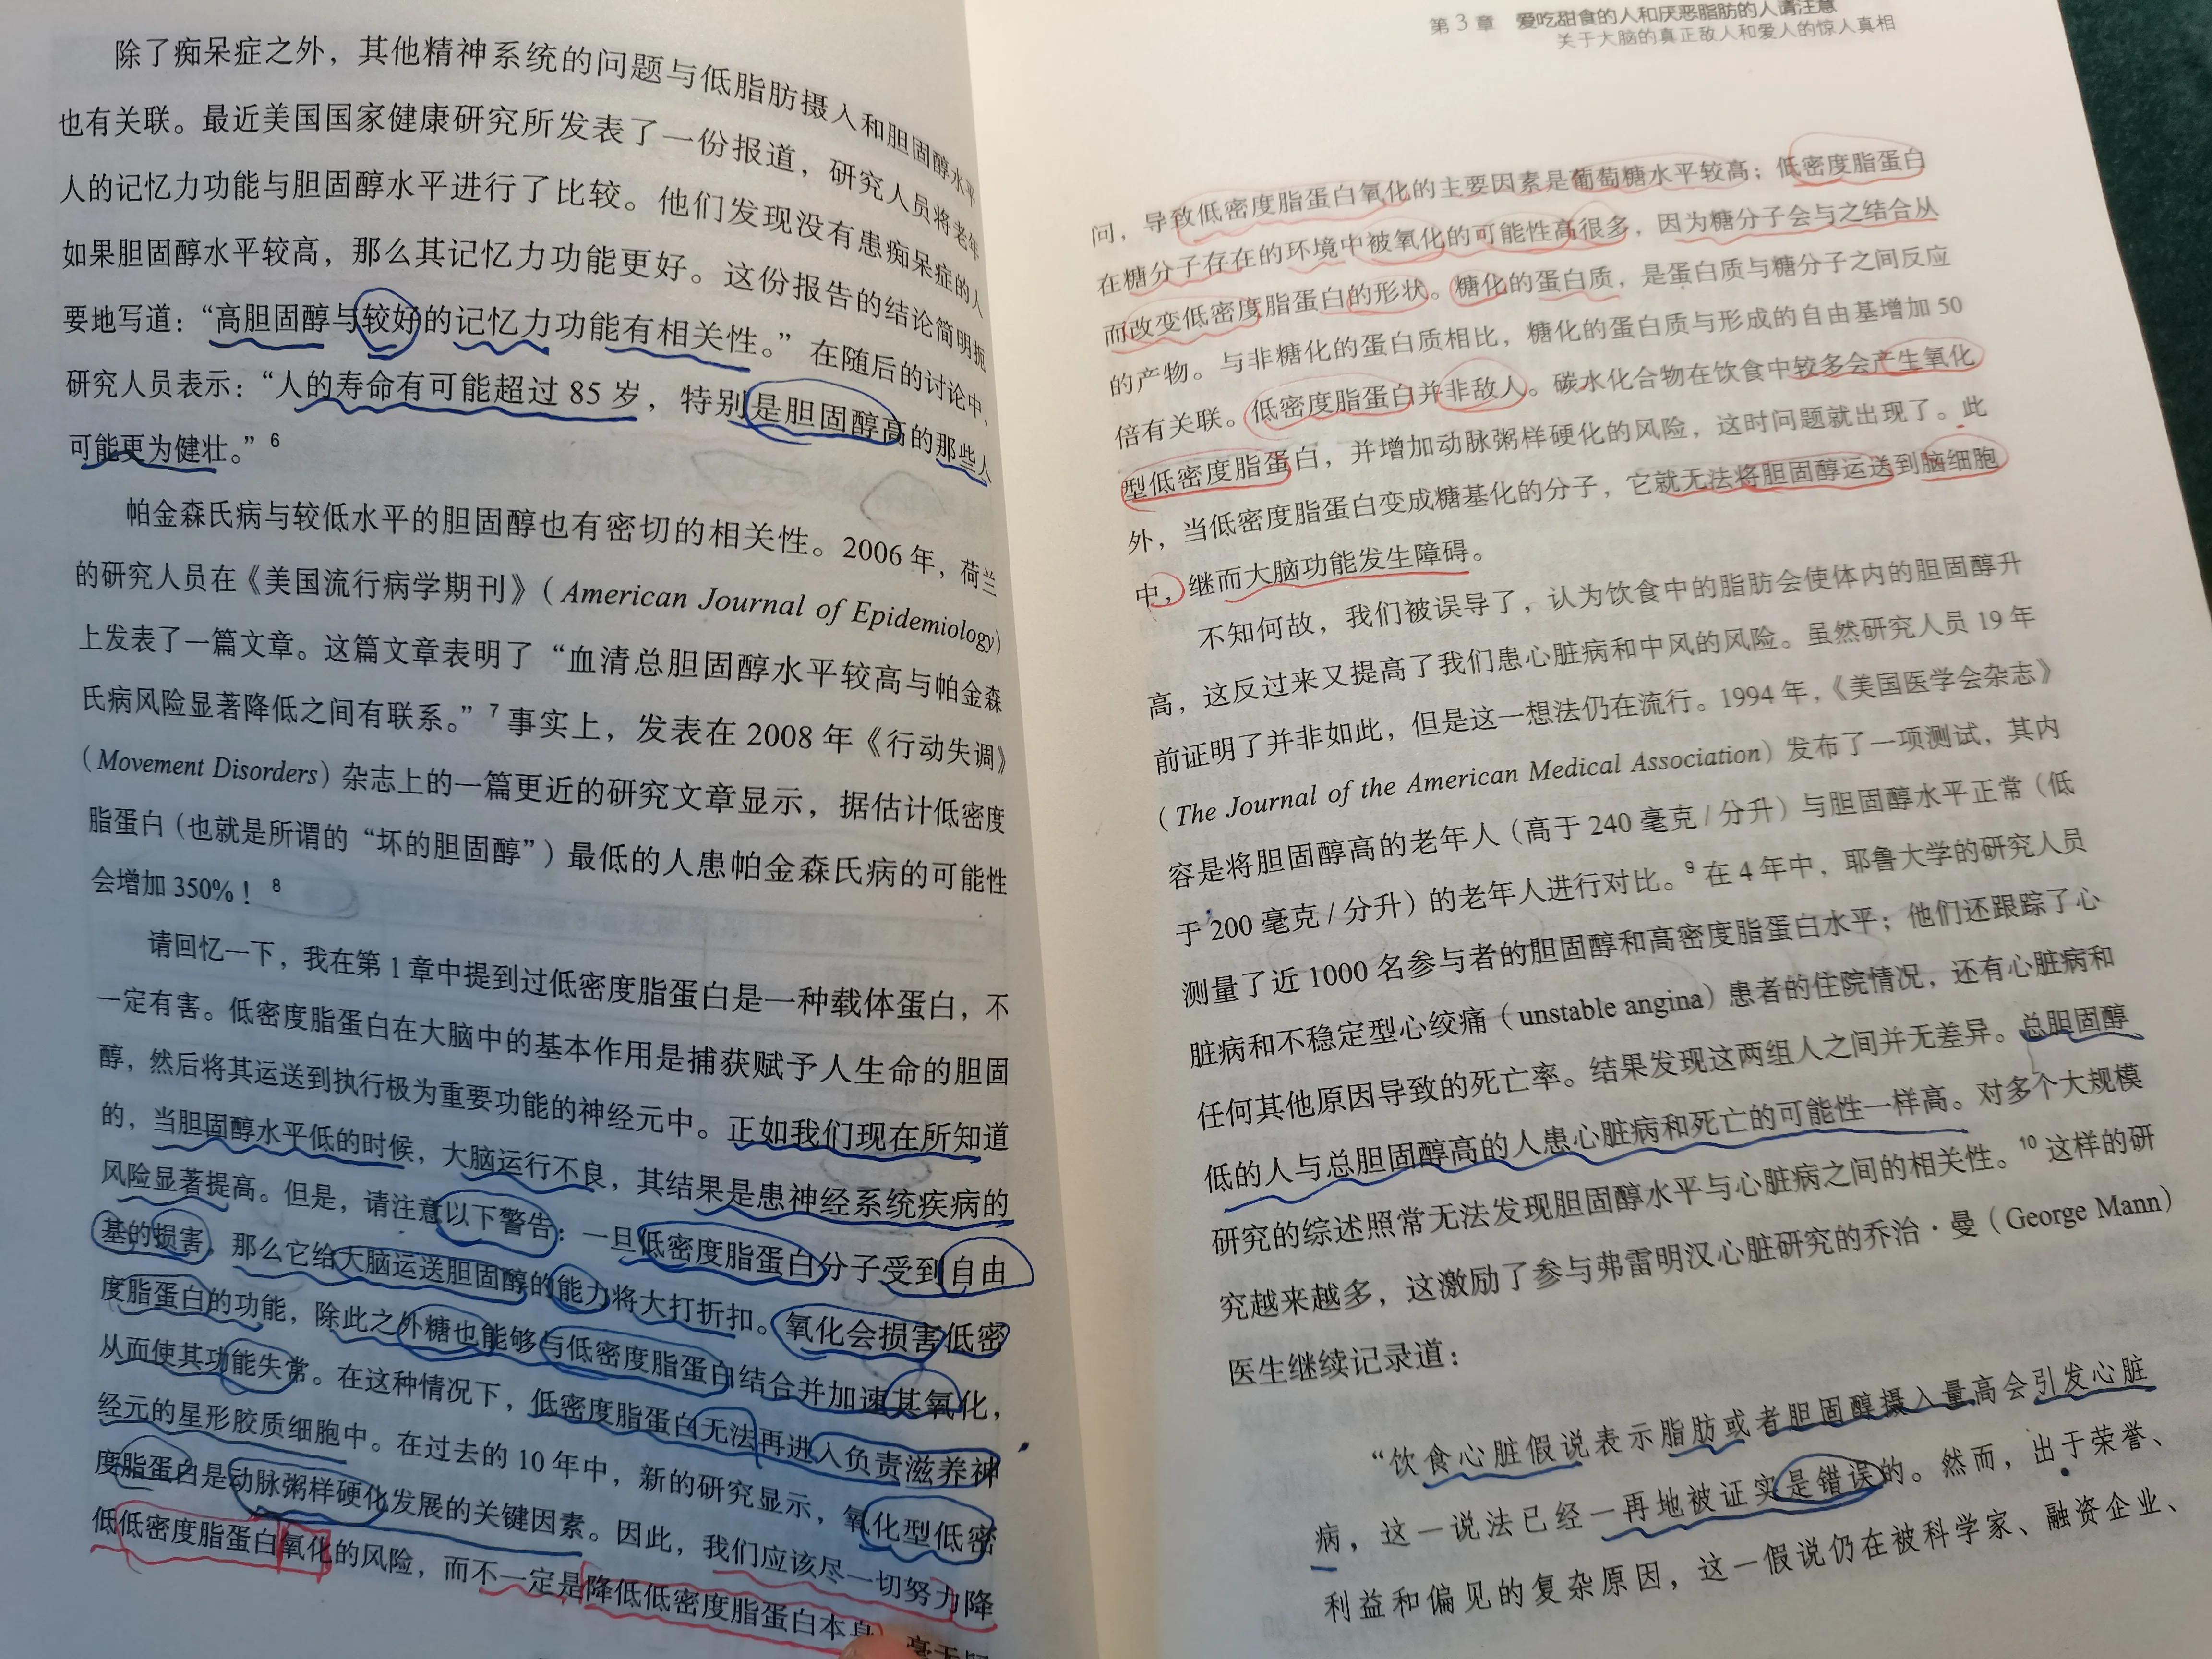 除了痴呆症之外，其他精神系统的问题与低脂肪摄入和胆固醇水平
也有关联。最近美国国家健康研究所发表了一份报道，研究人员将老年
人的记忆力功能与胆固醇水平进行了比较。他们发现没有患痴呆症的人
如果胆固醇水平较高，那么其记忆力功能更好。这份报告的结论简明扼
要地写道：“高胆固醇与较好的记忆力功能有相关性。”在随后的讨论中，
研究人员表示：“人的寿命有可能超过 85 岁，特别是胆固醇高的那些人
可能更为健壮。”6
帕金森氏病与较低水平的胆固醇也有密切的相关性。2006 年，荷兰
的研究人员在《美国流行病学期刊》（American Journal of Epidemiology）
上发表了一篇文章。这篇文章表明了“血清总胆固醇水平较高与帕金森
氏病风险显著降低之间有联系。”7 事实上，发表在 2008 年《行动失调》
（Movement Disorders）杂志上的一篇更近的研究文章显示，据估计低密度
脂蛋白（也就是所谓的“坏的胆固醇”）最低的人患帕金森氏病的可能性
会增加 350%！8
请回忆一下，我在第 1 章中提到过低密度脂蛋白是一种载体蛋白，不
一定有害。低密度脂蛋白在大脑中的基本作用是捕获赋予人生命的胆固
醇，然后将其运送到执行极为重要功能的神经元中。正如我们现在所知道
的，当胆固醇水平低的时候，大脑运行不良，其结果是患神经系统疾病的
风险显著提高。但是，请注意以下警告：一旦低密度脂蛋白分子受到自由
基的损害，那么它给大脑运送胆固醇的能力将大打折扣。氧化会损害低密
度脂蛋白的功能，除此之外糖也能够与低密度脂蛋白结合并加速其氧化，
从而使其功能失常。在这种情况下，低密度脂蛋白无法再进入负责滋养神
经元的星形胶质细胞中。在过去的 10 年中，新的研究显示，氧化型低密
度脂蛋白是动脉粥样硬化发展的关键因素。因此，我们应该尽一切努力降
低低密度脂蛋白氧化的风险，而不一定是降低低密度脂蛋白本身
第 3 章 爱吃甜食的人和厌恶脂肪的人请注意
关于大脑的真正敌人和爱人的惊人真相
问，导致低密度脂蛋白氧化的主要因素是葡萄糖水平较高；低密度脂蛋白
在糖分子存在的环境中被氧化的可能性高很多，因为糖分子会与之结合从
而改变低密度脂蛋白的形状。糖化的蛋白质，是蛋白质与糖分子之间反应
的产物。与非糖化的蛋白质相比，糖化的蛋白质与形成的自由基增加 50
倍有关联。低密度脂蛋白并非敌人。碳水化合物在饮食中较多会产生氧化
型低密度脂蛋白，并增加动脉粥样硬化的风险，这时问题就出现了。此
外，当低密度脂蛋白变成糖基化的分子，它就无法将胆固醇运送到脑细胞
中，继而大脑功能发生障碍。
不知何故，我们被误导了，认为饮食中的脂肪会使体内的胆固醇升
高，这反过来又提高了我们患心脏病和中风的风险。虽然研究人员 19 年
前证明了并非如此，但是这一想法仍在流行。1994 年，《美国医学会杂志》
（The Journal of the American Medical Association）发布了一项测试，其内
容是将胆固醇高的老年人（高于 240 毫克 / 分升）与胆固醇水平正常（低
于 200 毫克 / 分升）的老年人进行对比。9 在 4 年中，耶鲁大学的研究人员
测量了近 1000 名参与者的胆固醇和高密度脂蛋白水平；他们还跟踪了心
脏病和不稳定型心绞痛（unstable angina）患者的住院情况，还有心脏病和
任何其他原因导致的死亡率。结果发现这两组人之间并无差异。总胆固醇
低的人与总胆固醇高的人患心脏病和死亡的可能性一样高。对多个大规模
研究的综述照常无法发现胆固醇水平与心脏病之间的相关性。10 这样的研
究越来越多，这激励了参与弗雷明汉心脏研究的乔治·曼（George Mann）
医生继续记录道：
“饮食心脏假说表示脂肪或者胆固醇摄入量高会引发心脏
病，这一说法已经一再地被证实是错误的。然而，出于荣誉、
利益和偏见的复杂原因，这一假说仍在被科学家、融资企业、